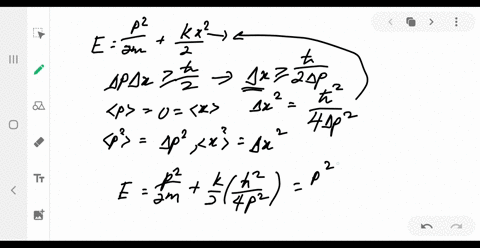 E = p²/2m + kx²/2 →
ΔpΔx ≥ ħ/2 → Δx ≥ ħ/2Δp
<p> = 0 = <x> Δx² = ħ²/4Δp²
<p²> = Δp², <x²> = Δx²
E = p²/2m + k/2 (ħ²/4p²) = p²
Tт